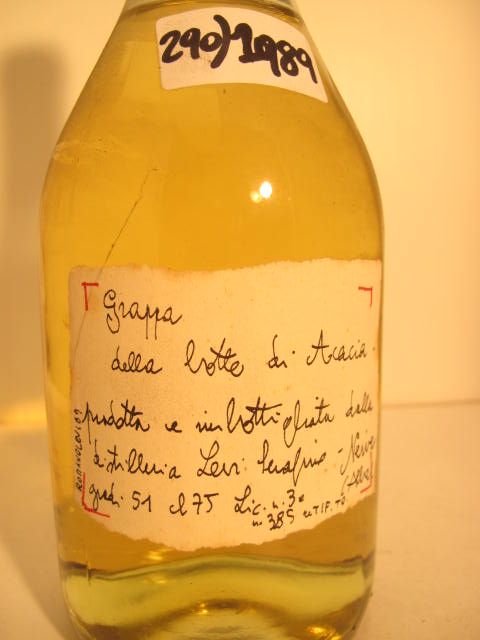 290)1989
Grappa
della botte di Acacia -
prodotta e imbottigliata dalla
distilleria Levi Serafino - Neive
(Alba)
gradi 51 cl 75 Lic. n. 3e
n. 385 UTIF. TO
ROMANO LEVI 89